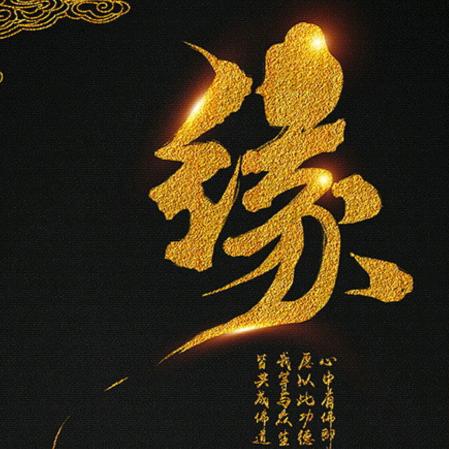 缘
心中有佛即
愿以此功德
我等与众生
皆共成佛道